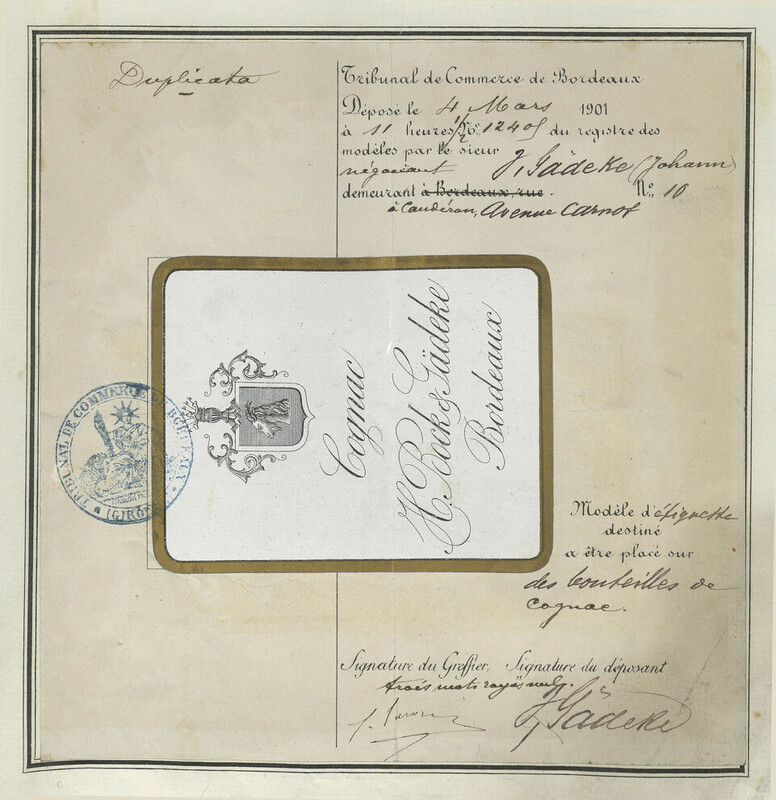 Duplicata
Tribunal de Commerce de Bordeaux
Déposé le 4 Mars 1901
à 11 heures 1/2 No. 12405 du registre des
modèles par le sieur
négociant J, Gädeke (Johann)
demeurant à Bordeaux, rue. No. 10
à Caudéran, Avenue Carnot
Cognac
H. Bock & Gädeke
Bordeaux
TRIBUNAL DE COMMERCE DE BORDEAUX
(GIRONDE)
Modèle d'étiquette
destiné
a être placé sur
des bouteilles de
cognac.
Signature du Greffier. Signature du déposant
trois mots rayés nuls.
J, Gädeke